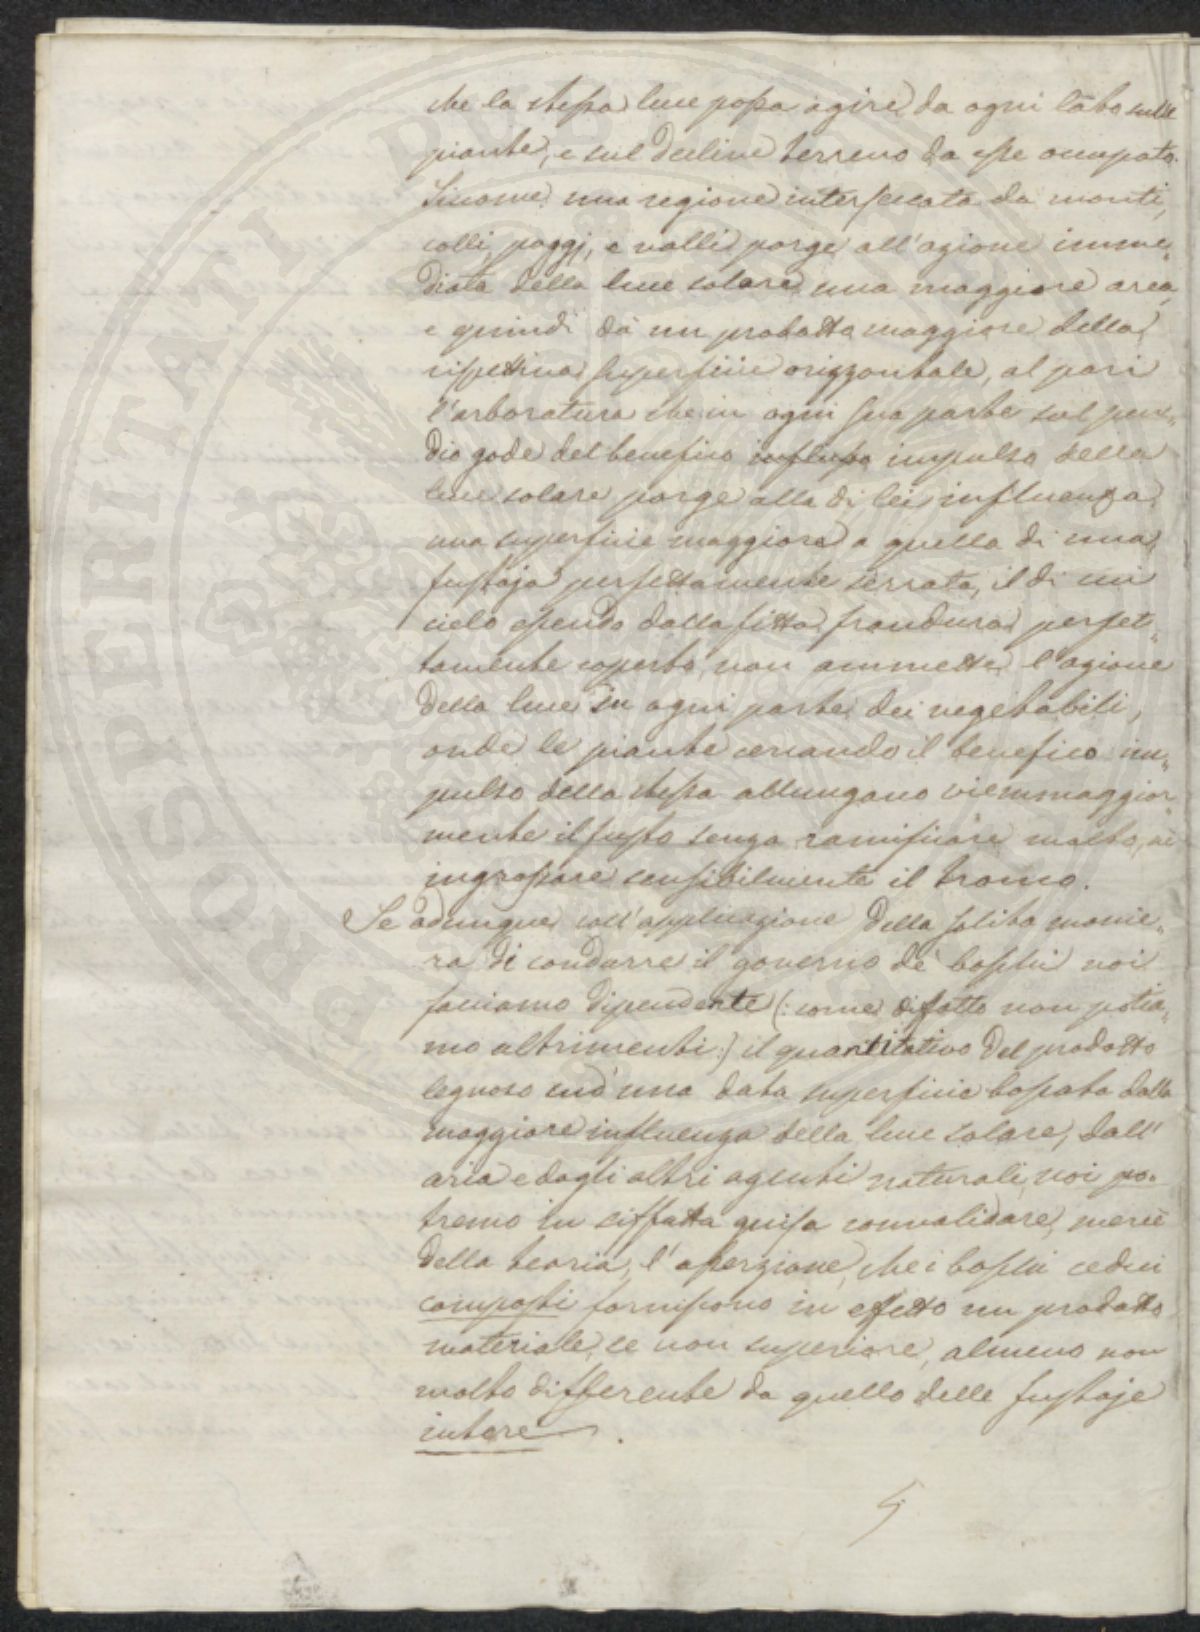 che la stessa luce possa agire da ogni lato sulle
piante, e sul declive terreno da esse occupato.
Siccome una regione intersecata da monti,
colli, poggj, e valli porge all'azione imme„
diata della luce solare una maggiore area,
e quindi dà un prodotto maggiore della
rispettiva superficie orizzontale, al pari
l'arboratura che in ogni sua parte sul pen„
dio gode del benefico influsso impulso della
luce solare porge alla di lei influenza
una superficie maggiore a quella di una
fustaja perfettamente serrata, il di cui
cielo essendo dalla fitta frondura perfet„
tamente coperto, non ammette l'azione
della luce in ogni parte dei vegetabili,
onde le piante cercando il benefico im„
pulso della stessa allungano viemmaggior„
mente il fusto senza ramificare molto, nè
ingrossare sensibilmente il tronco.
Se adunque coll'applicazione della solita manie„
ra di condurre il governo de' boschi noi
facciamo dipendente (: come difatto non potia„
mo altrimenti :) il quantitativo del prodotto
legnoso sud'una data superficie boscata dalla
maggiore influenza della luce solare, dall'
aria e dagli altri agenti naturali, noi po„
tremo in siffatta guisa convalidare, mercè
della teoria, l'aserzione, che i boschi cedui
composti forniscono in effetto un prodotto
materiale, se non superiore, almeno non
molto differente da quello delle fustaje
intere.
PROSPERITATI PUBLICAE